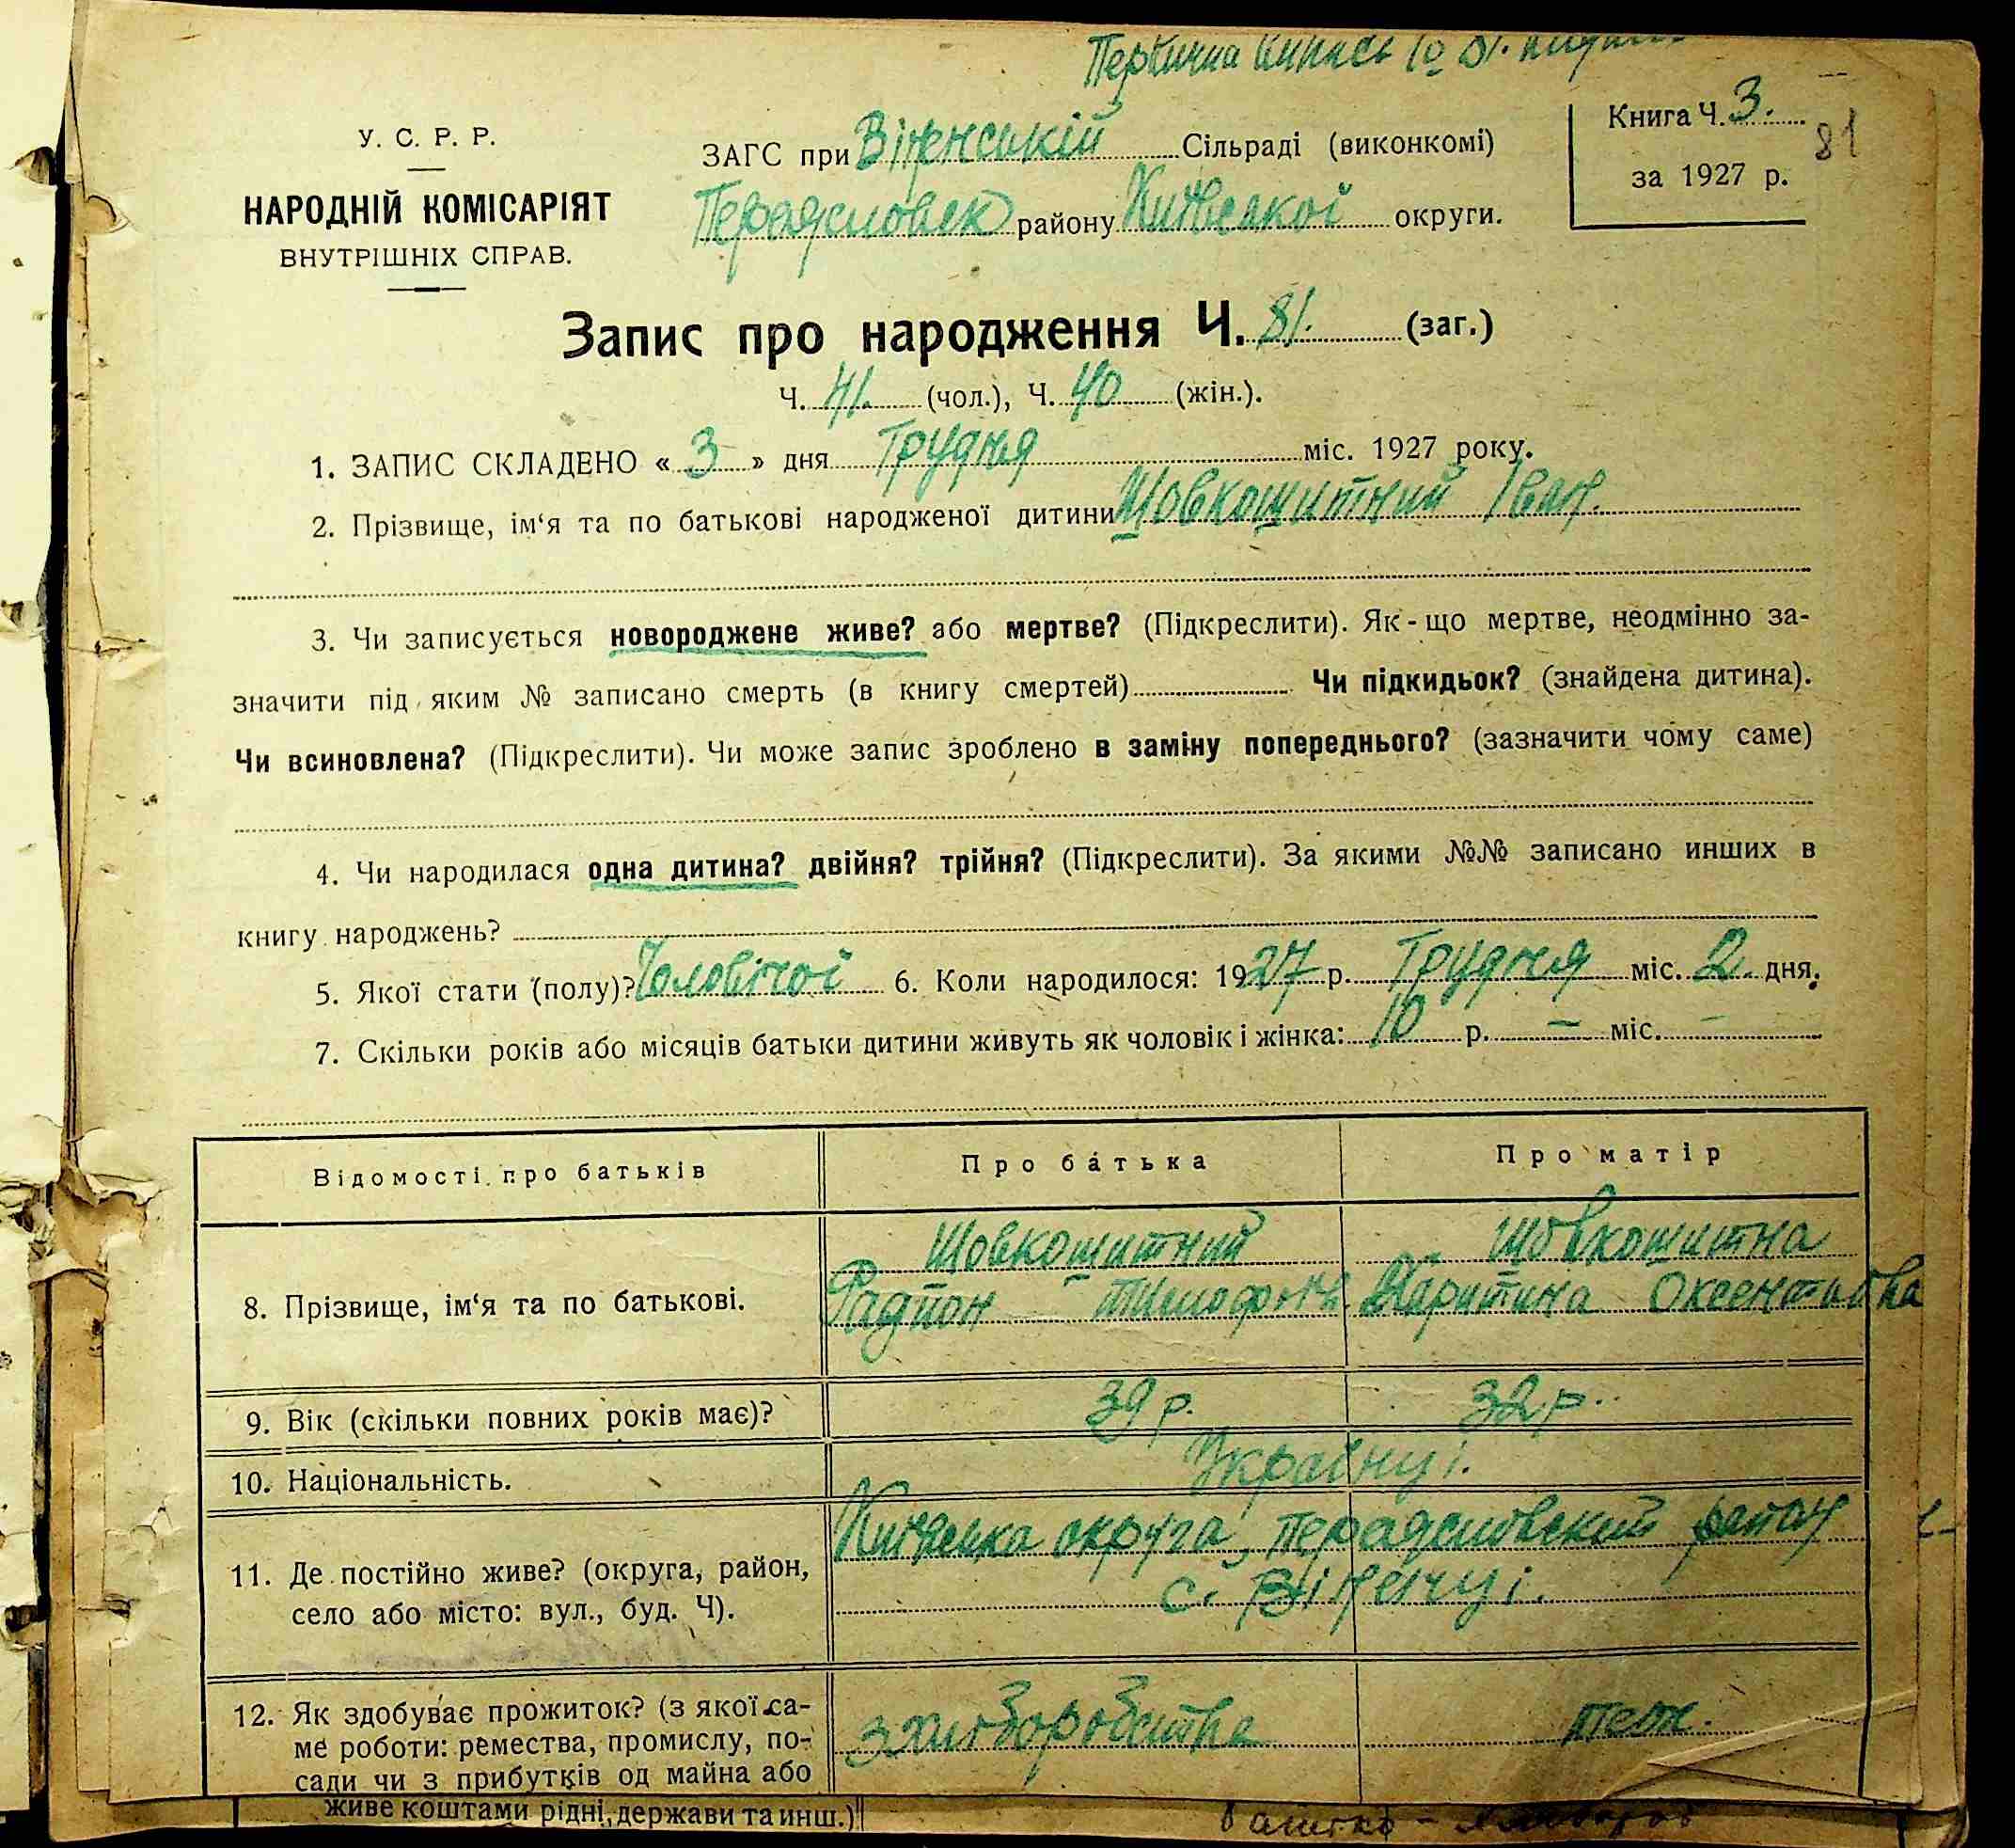 Первична
У. С. Р. Р.
НАРОДНІЙ КОМІСАРІЯТ
ВНУТРІШНІХ СПРАВ.
ЗАГС при Віненській Сільраді (виконкомі)
району Київської округи.
Книга Ч. 3.
за 1927 р.
81
Запис про народження Ч. 81. (заг.)
Ч. 41. (чол.), Ч. 40 (жін.).
1. ЗАПИС СКЛАДЕНО « 3 » дня Грудня міс. 1927 року.
2. Прізвище, ім‘я та по батькові народженої дитини Шовкошитний Іван.
3. Чи записується новороджене живе? або мертве? (Підкреслити). Як-що мертве, неодмінно за-
значити під яким № записано смерть (в книгу смертей) Чи підкидьок? (знайдена дитина).
Чи всиновлена? (Підкреслити). Чи може запис зроблено в заміну попереднього? (зазначити чому саме)
4. Чи народилася одна дитина? двійня? трійня? (Підкреслити). За якими №№ записано инших в
книгу народжень?
5. Якої стати (полу)? Чоловічої 6. Коли народилося: 1927 р. Грудня міс. 2. дня.
7. Скільки років або місяців батьки дитини живуть як чоловік і жінка: 10 р. — міс. —
Відомості про батьків Про батька Про матір
Шовкошитний Шовкошитна
8. Прізвище, ім‘я та по батькові. Радион Оксентьівна
9. Вік (скільки повних років має)? 39 р. 32 р.
10. Національність. Українці.
11. Де постійно живе? (округа, район, округа, район
село або місто: вул., буд. Ч). с. Віненці.
12. Як здобуває прожиток? (з якої са-
ме роботи: ремества, промислу, по- з хліборобства теж.
сади чи з прибутків од майна або
живе коштами рідні, держави та инш.)